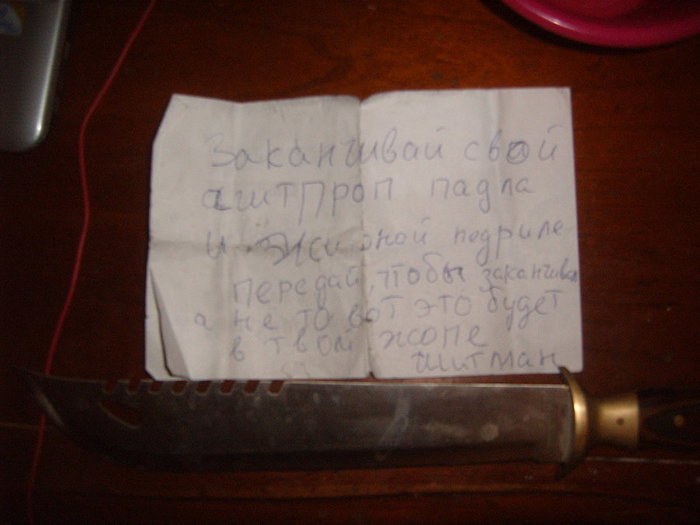 Заканчивай свой
аштпроп падла
и жирной педриле
передай, чтобы заканчивал
а не то вот это будет
в твой жопе
шитман